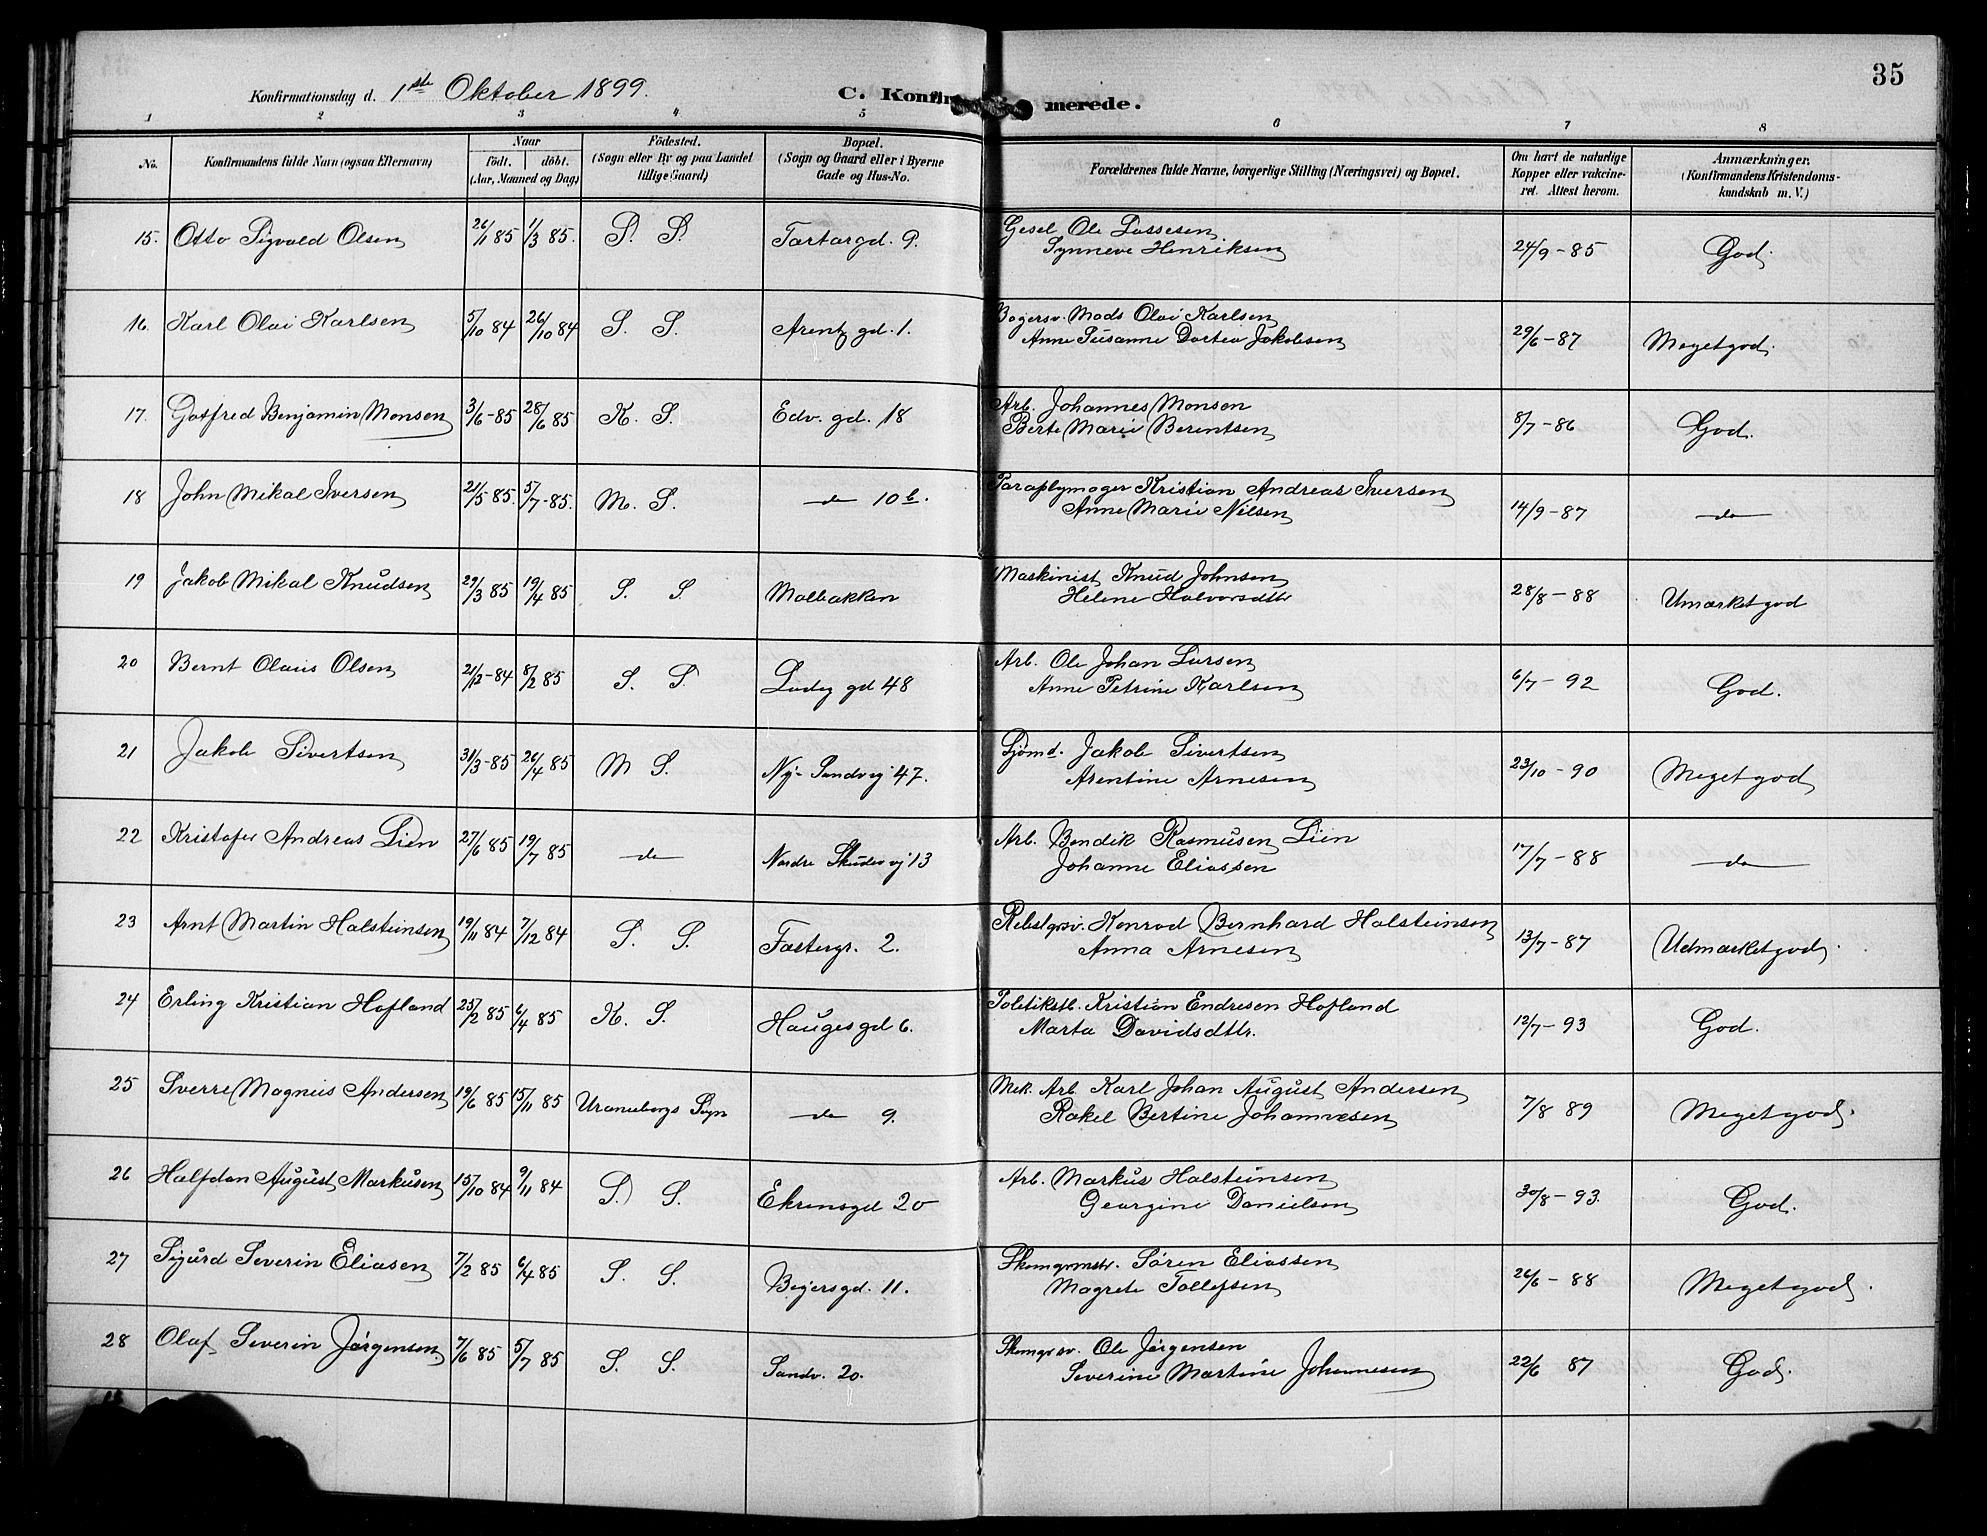 35
Konfirmationsdag d. 1ste Oktober 1899.
C. Konfir merede.
1 2 3 4 5 6 7 8
No. Konfirmandens fulde Navn (ogsaa Efternavn) Naar født. døbt. (Aar, Maaned og Dag) Fødested. (Sogn eller By og paa Landet tillige Gaard) Bopæl. (Sogn og Gaard eller i Byerne Gade og Hus-No. Forældrenes fulde Navne, borgerlige Stilling (Næringsvei) og Bopæl. Om havt de naturlige Kopper eller vakcineret. Attest herom. Anmærkninger. (Konfirmandens Kristendomskundskab m. V.)
15. Otto Sigvald Olsen 26/1 85 1/3 85. S. S. Tartargd. 9. Gesel Ole Lassesen 24/9 - 85 God.
Synneve Henriksen
16. Karl Olai Karlsen 5/10 84 26/10 84 S. S. Arentz gd. 1. Bagersv. Mads Olai Karlsen 29/6 - 87 Megetgod.
Anne Susanne Dortea Jakobsen
17. Gotfred Benjamin Monsen 3/6 - 85 28/6 85 K. S. Edv. gd. 18 Arb. Johannes Monsen 8/7 - 86 God.
Berte Marie Berentsen
18 John Mikal Iversen 21/5 85. 5/7 - 85. M. S. do 10 b. Paraplymager Kristian Andreas Iversen 14/9 - 87 do
Anne Marie Nilsen
19 Jakob Mikal Knudsen 29/3 85 19/4 85 S. S. Mølbakken Maskinist Knud Johnsen 28/8 - 88 Umærketgod
Helene Halvorsdttr
20 Bernt Olaus Olsen 21/12 - 84 8/2 85 S. S. Ladeg gd 48 Arb. Ole Johan Larsen 6/7 - 92 God.
Anne Petrine Karlsen
21 Jakob Sivertsen 31/3 - 85 26/4 85 M S. Nye Sandvej 47. Sjømd. Jakob Sivertsen 23/10 - 90 Megetgod
Arentine Arnesen
22 Kristofer Andreas Lien 27/6 85 19/7 85 do Nordre Skudevj 13 Arb. Bendik Rasmusen Lien 17/7 - 88 do
Johanne Eliassen
23 Arnt Martin Halsteinsen 19/11 84 7/12 84 S. S. Fastergr. 2. Rebslgrsv. Konrad Bernhard Halsteinsen 13/7 - 87 Udmærketgod.
Anna Arnesen
24 Erling Kristian Hofland 25/2 85 6/4 85 K. S. Haugesgd 6. Politiketb. Kristian Endresen Hofland 12/7 - 93 God.
Marta Davidsdttr.
25 Sverre Magnus Andersen 19/6 85 15/11 85 Uranieborgs Sogn do 9. Mek. Arb Karl Johan August Andersen 7/8 89 Megetgod.
Rakel Bertine Johannesen
26 Halfdan August Markusen 15/10 84 9/11 84 S. S. Ekrensgd 20 Arb. Markus Halsteinsen 30/8 - 93. God.
Georgine Danielsen
27 Sigurd Severin Eliasen 7/2 85 6/4 85 S. S. Beyersgd. 11. Skomgrmstr. Søren Eliassen 26/6 - 88 Megetgod.
Magrete Tollefsen
28 Olaf Severin Jørgensen 7/6 85 5/7 85 S. S. Sandv. 20. Skomgrsv. Ole Jørgensen 22/6 87 God.
Severine Martine Johannesen